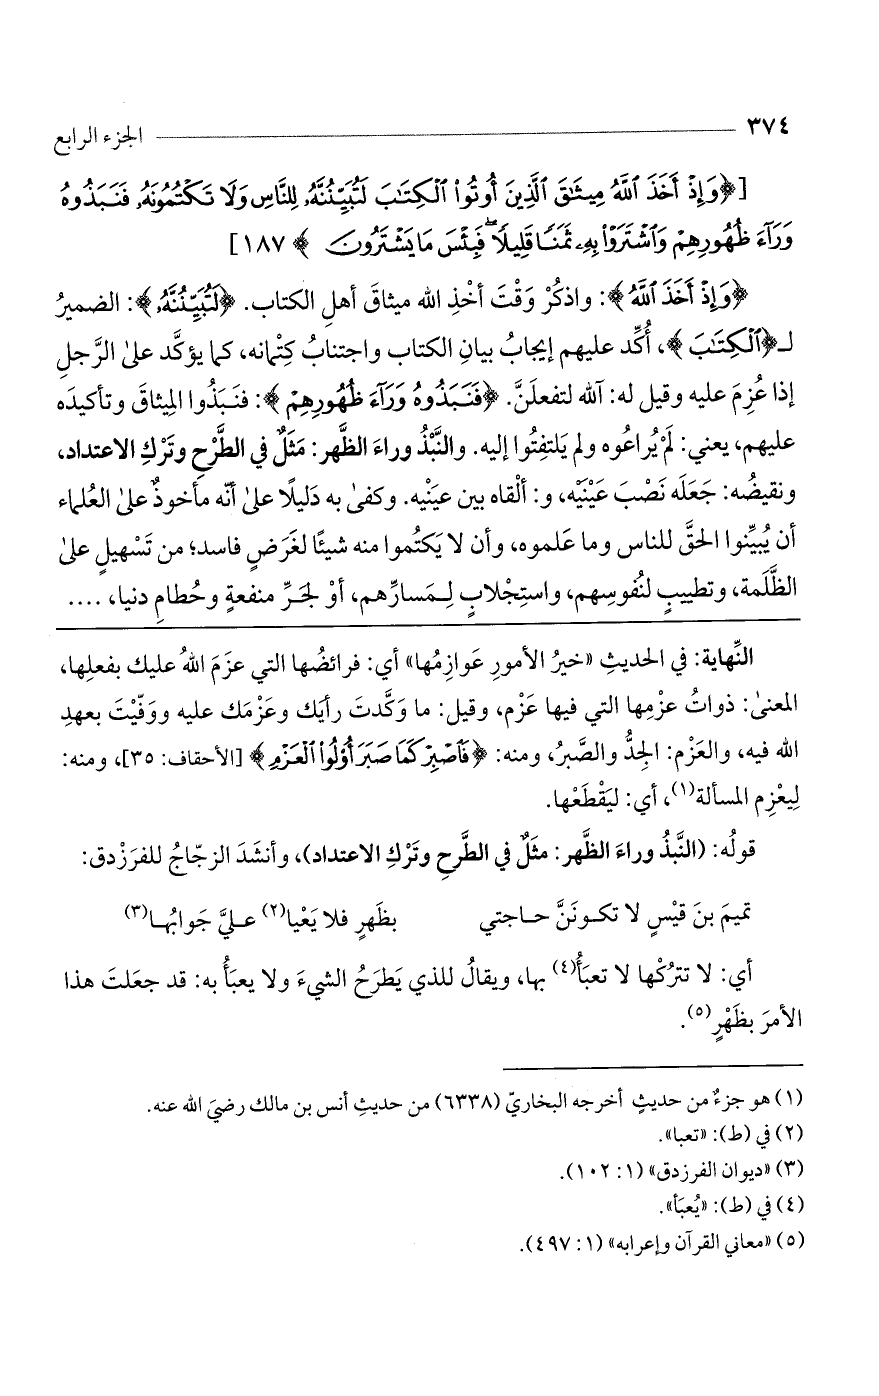 ٣٧٤ الجزء الرابع
[﴿وَإِذْ أَخَذَ ٱللَّهُ مِيثَٰقَ ٱلَّذِينَ أُوتُوا۟ ٱلْكِتَٰبَ لَتُبَيِّنُنَّهُۥ لِلنَّاسِ وَلَا تَكْتُمُونَهُۥ فَنَبَذُوهُ
وَرَآءَ ظُهُورِهِمْ وَٱشْتَرَوْا۟ بِهِۦ ثَمَنًا قَلِيلًا ۖ فَبِئْسَ مَا يَشْتَرُونَ ﴾ ١٨٧]
﴿وَإِذْ أَخَذَ ٱللَّهُ﴾: واذكرْ وَقْتَ أخْذِ الله ميثاقَ أهلِ الكتاب. ﴿لَتُبَيِّنُنَّهُۥ﴾: الضميرُ
لـ﴿ٱلْكِتَٰبَ﴾، أُكِّد عليهم إيجابُ بيانِ الكتاب واجتنابُ كِتْمانه، كما يؤكَّد على الرَّجلِ
إذا عُزِمَ عليه وقيل له: آلله لتفعلَنَّ. ﴿فَنَبَذُوهُ وَرَآءَ ظُهُورِهِمْ﴾: فنَبَذُوا المِيثاقَ وتأكيدَه
عليهم، يعني: لَمْ يُراعُوه ولم يَلتفِتُوا إليه. والنَّبْذُ وراءَ الظَّهر: مَثَلٌ في الطَّرْحِ وتَرْكِ الاعتداد،
ونقيضُه: جَعَلَه نَصْبَ عَيْنَيْه، و: ألْقاه بين عينَيْه. وكفىٰ به دَليلًا علىٰ أنّه مأخوذٌ علىٰ العُلماء
أن يُبيِّنوا الحقَّ للناس وما عَلموه، وأن لا يَكتُموا منه شيئًا لغَرَضٍ فاسد؛ من تَسْهيلٍ علىٰ
الظَّلَمة، وتطييبٍ لنُفوسِهم، واستِجْلابٍ لِـمَسارِّهم، أوْ لجَرِّ منفعةٍ وحُطامِ دنيا، ....
النِّهاية: في الحديثِ «خيرُ الأمورِ عَوازِمُها» أي: فرائضُها التي عزَمَ اللهُ عليك بفعلِها،
المعنىٰ: ذواتُ عزْمِها التي فيها عَزْم، وقيل: ما وَكَّدتَ رأيَك وعَزْمَك عليه ووَفّيْتَ بعهدِ
الله فيه، والعَزْم: الجِدُّ والصَّبرُ، ومنه: ﴿فَٱصْبِرْ كَمَا صَبَرَ أُو۟لُوا۟ ٱلْعَزْمِ﴾ [الأحقاف: ٣٥]، ومنه:
لِيعْزِم المسألة(١)، أي: ليَقْطَعْها.
قولُه: (النَّبذُ وراءَ الظَّهر: مثَلٌ في الطَّرحِ وتَرْكِ الاعتداد)، وأنشَدَ الزجّاجُ للفرَزْدق:
تميمَ بنَ قيْسٍ لا تكونَنَّ حاجتي بظَهرٍ فلا يَعْيا(٢) عليَّ جَوابُها(٣)
أي: لا تترُكْها لا تعبَأُ(٤) بها، ويقالُ للذي يَطرَحُ الشيءَ ولا يعبَأُ به: قد جعَلتَ هذا
الأمرَ بظَهْرٍ(٥).
(١) هو جزءٌ من حديثٍ أخرجه البخاريّ (٦٣٣٨) من حديثِ أنس بن مالك رضيَ الله عنه.
(٢) في (ط): «تعبا».
(٣) «ديوان الفرزدق» (١: ١٠٢).
(٤) في (ط): «يُعبَأ».
(٥) «معاني القرآن وإعرابه» (١: ٤٩٧).